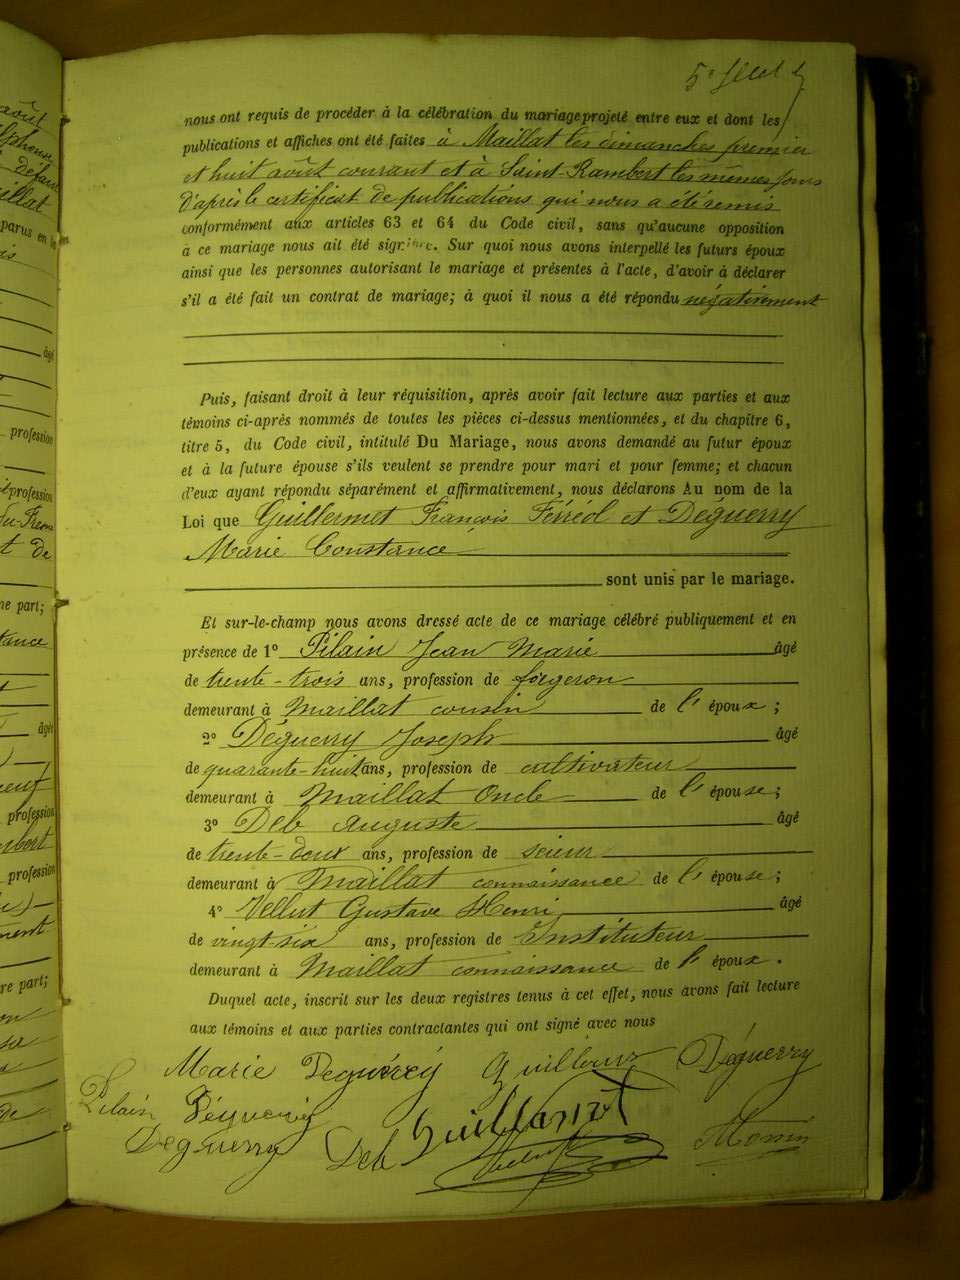 5e feuillet
août
Alphonse
défunt
Maillat
parus en
âgé
profession
profession
t de
ne part;
tance
âgé
profession
profession
re part;
nous ont requis de procéder à la célébration du mariage projeté entre eux et dont les
publications et affiches ont été faites à Maillat les dimanches premier
et huit août courant et à Saint-Rambert les mêmes jours
d'après le certificat de publications qui nous a été remis
conformément aux articles 63 et 64 du Code civil, sans qu'aucune opposition
à ce mariage nous ait été signifiée. Sur quoi nous avons interpellé les futurs époux
ainsi que les personnes autorisant le mariage et présentes à l'acte, d'avoir à déclarer
s'il a été fait un contrat de mariage; à quoi il nous a été répondu négativement
Puis, faisant droit à leur réquisition, après avoir fait lecture aux parties et aux
témoins ci-après nommés de toutes les pièces ci-dessus mentionnées, et du chapitre 6,
titre 5, du Code civil, intitulé Du Mariage, nous avons demandé au futur époux
et à la future épouse s'ils veulent se prendre pour mari et pour femme; et chacun
d'eux ayant répondu séparément et affirmativement, nous déclarons Au nom de la
Loi que Guillermet François Férréol et Déguerry
Marie Constance
sont unis par le mariage.
Et sur-le-champ nous avons dressé acte de ce mariage célébré publiquement et en
présence de 1° Pilain Jean Marie âgé
de trente-trois ans, profession de forgeron
demeurant à Maillat cousin de l'époux;
2° Déguerry Joseph âgé
de quarante-huit ans, profession de cultivateur
demeurant à Maillat Oncle de l'épouse;
3° Deb Auguste âgé
de trente-deux ans, profession de scieur
demeurant à Maillat connaissance de l'épouse;
4° Vellut Gustave Henri âgé
de vingt-six ans, profession de Instituteur
demeurant à Maillat connaissance de l'époux.
Duquel acte, inscrit sur les deux registres tenus à cet effet, nous avons fait lecture
aux témoins et aux parties contractantes qui ont signé avec nous
Marie Deguérrey Déguerry
Pilain Déguerry
Deguerry Deb Guillermet Vellut Monin